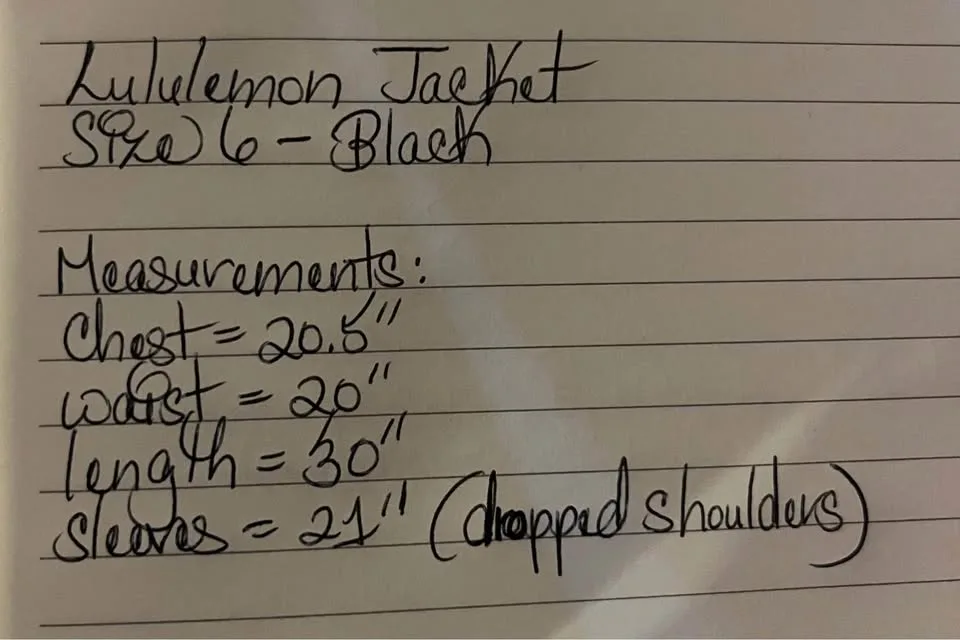 Lululemon Jacket
Size 6 - Black
Measurements:
Chest = 20.5"
waist = 20"
length = 30"
sleeves = 21" (dropped shoulders)